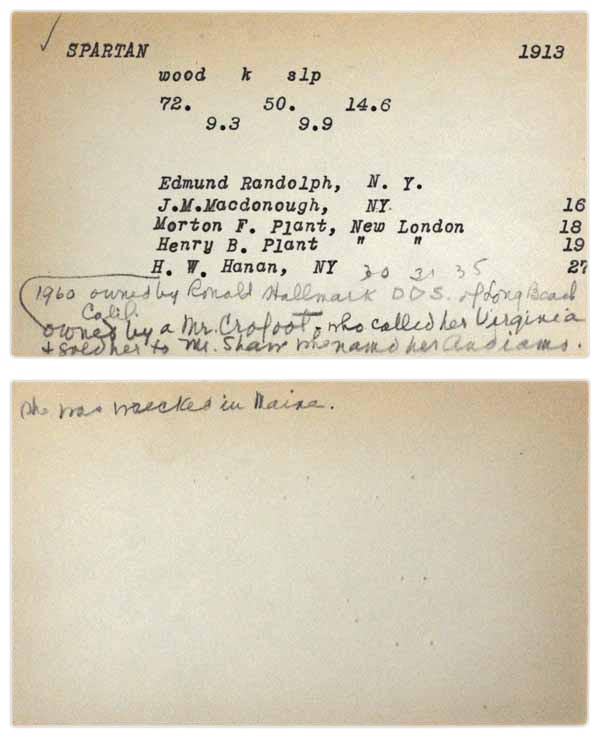 SPARTAN 1913
wood k slp
72. 50. 14.6
9.3 9.9
Edmund Randolph, N. Y.
J.M.Macdonough, NY. 16
Morton F. Plant, New London 18
Henry B. Plant " " 19
H. W. Hanan, NY 30 31 35 27
1960 owned by Ronald Hallmark DDS. of Long Beach
Calif.
owned by a Mr. Crofoot, who called her Virginia
+ sold her to Mr. Shaw who named her Andiamo.
she was wrecked in Maine.